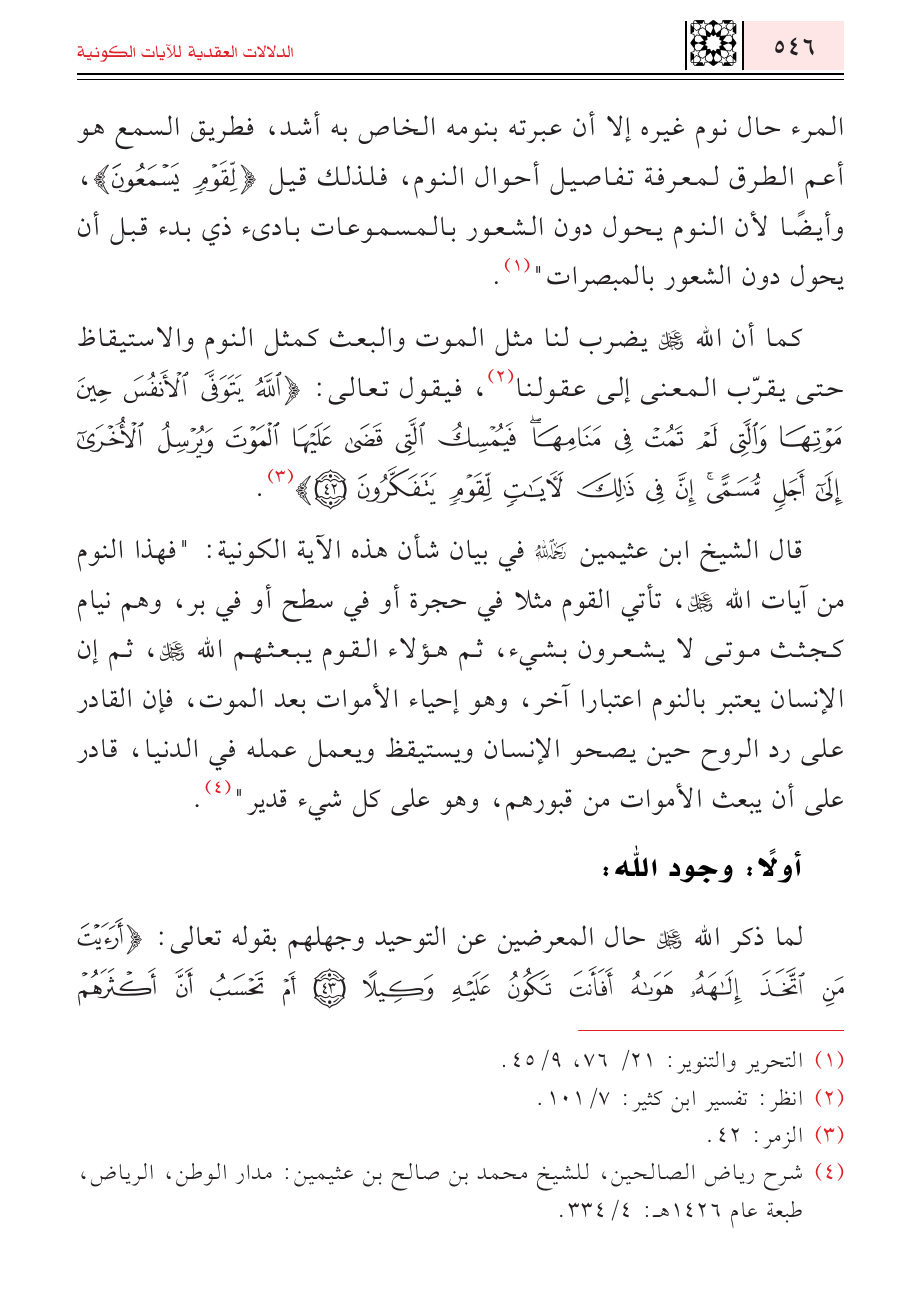 ٥٤٦
الدلالات العقدية للآيات الكونية
المرء حال نوم غيره إلا أن عبرته بنومه الخاص به أشد، فطريق السمع هو
أعم الطرق لمعرفة تفاصيل أحوال النوم، فلذلك قيل ﴿لِّقَوۡمٖ يَسۡمَعُونَ﴾،
وأيضًا لأن النوم يحول دون الشعور بالمسموعات بادىء ذي بدء قبل أن
يحول دون الشعور بالمبصرات"(١).
كما أن الله ﷿ يضرب لنا مثل الموت والبعث كمثل النوم والاستيقاظ
حتى يقرّب المعنى إلى عقولنا(٢)، فيقول تعالى: ﴿ٱللَّهُ يَتَوَفَّى ٱلۡأَنفُسَ حِينَ
مَوۡتِهَا وَٱلَّتِي لَمۡ تَمُتۡ فِي مَنَامِهَاۖ فَيُمۡسِكُ ٱلَّتِي قَضَىٰ عَلَيۡهَا ٱلۡمَوۡتَ وَيُرۡسِلُ ٱلۡأُخۡرَىٰٓ
إِلَىٰٓ أَجَلٖ مُّسَمًّىۚ إِنَّ فِي ذَٰلِكَ لَأٓيَٰتٖ لِّقَوۡمٖ يَتَفَكَّرُونَ ٤٢﴾(٣).
قال الشيخ ابن عثيمين ﵀ في بيان شأن هذه الآية الكونية: "فهذا النوم
من آيات الله ﷿، تأتي القوم مثلا في حجرة أو في سطح أو في بر، وهم نيام
كجثث موتى لا يشعرون بشيء، ثم هؤلاء القوم يبعثهم الله ﷿، ثم إن
الإنسان يعتبر بالنوم اعتبارا آخر، وهو إحياء الأموات بعد الموت، فإن القادر
على رد الروح حين يصحو الإنسان ويستيقظ ويعمل عمله في الدنيا، قادر
على أن يبعث الأموات من قبورهم، وهو على كل شيء قدير"(٤).
أولًا: وجود الله:
لما ذكر الله ﷿ حال المعرضين عن التوحيد وجهلهم بقوله تعالى: ﴿أَرَءَيۡتَ
مَنِ ٱتَّخَذَ إِلَٰهَهُۥ هَوَىٰهُ أَفَأَنتَ تَكُونُ عَلَيۡهِ وَكِيلًا ٤٣ أَمۡ تَحۡسَبُ أَنَّ أَكۡثَرَهُمۡ
(١) التحرير والتنوير: ٢١/ ٧٦، ٩/ ٤٥.
(٢) انظر: تفسير ابن كثير: ٧/ ١٠١.
(٣) الزمر: ٤٢.
(٤) شرح رياض الصالحين، للشيخ محمد بن صالح بن عثيمين: مدار الوطن، الرياض،
طبعة عام ١٤٢٦هـ: ٤/ ٣٣٤.